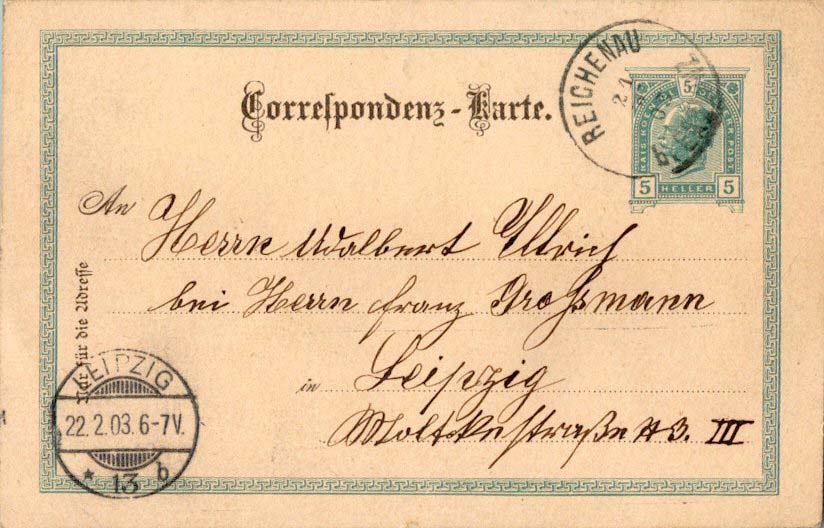 Correspondenz-Karte.
REICHENAU
5
KAIS. KÖN. OEST
5 HELLER 5
An Herrn Adalbert Ullrich
bei Herrn Franz Großmann
in Leipzig
Moltkestraße III
Nur für die Adresse
LEIPZIG
22.2.03.6-7V.
* 13 b